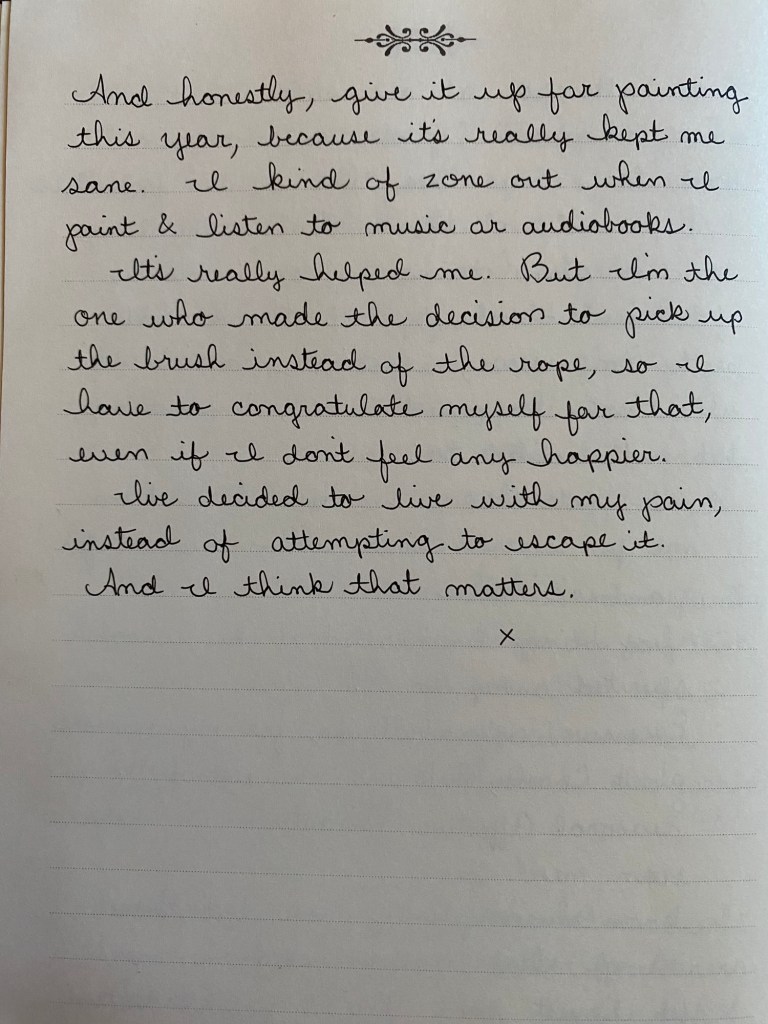 And honestly, give it up for painting
this year, because it's really kept me
sane. I kind of zone out when I
paint & listen to music or audiobooks.
It's really helped me. But I'm the
one who made the decision to pick up
the brush instead of the rope, so I
have to congratulate myself for that,
even if I don't feel any happier.
I've decided to live with my pain,
instead of attempting to escape it.
And I think that matters.
x